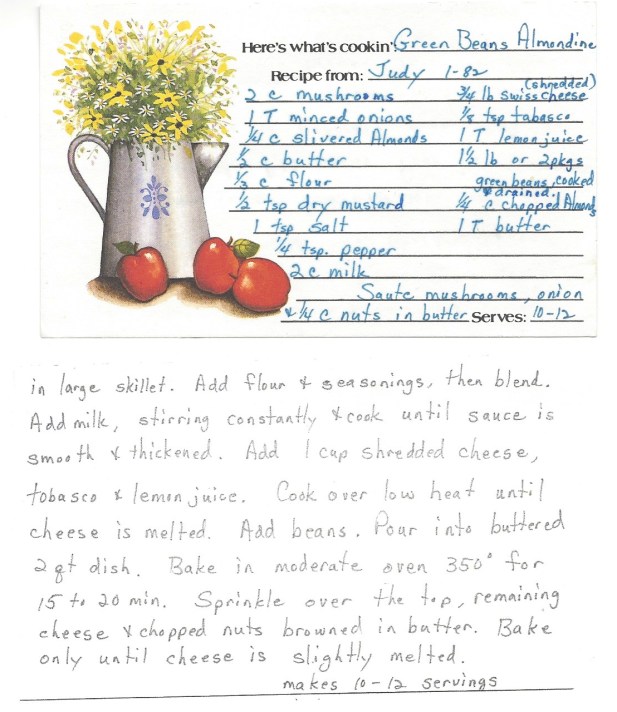 Here's what's cookin': Green Beans Almondine
Recipe from: Judy 1-82
2 c mushrooms
1 T minced onions
1/4 c slivered Almonds
1/2 c butter
1/3 c flour
1/2 tsp dry mustard
1 tsp salt
1/4 tsp. pepper
2 c milk
(shredded)
3/4 lb Swiss cheese
1/8 tsp tabasco
1 T lemon juice
1 1/2 lb or 2 pkgs
green beans, cooked
& drained.
1/4 c chopped Almonds
1 T butter
Saute mushrooms, onion
& 1/4 c nuts in butter Serves: 10-12
in large skillet. Add flour & seasonings, then blend.
Add milk, stirring constantly & cook until sauce is
smooth & thickened. Add 1 cup shredded cheese,
tobasco & lemon juice. Cook over low heat until
cheese is melted. Add beans. Pour into buttered
2 qt dish. Bake in moderate oven 350° for
15 to 20 min. Sprinkle over the top, remaining
cheese & chopped nuts browned in butter. Bake
only until cheese is slightly melted.
makes 10-12 servings